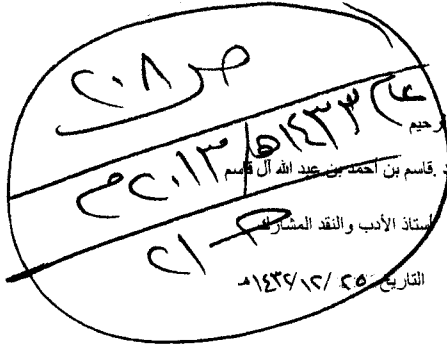 ص ٢٠٨
عام ١٤٣٣هـ/٢٠١٣م
رحيم
د.قاسم بن أحمد بن عبد الله آل قاسم
أستاذ الأدب والنقد المشارك
ص ٢١
التاريخ ٢٥ /١٢/ ١٤٣٢هـ